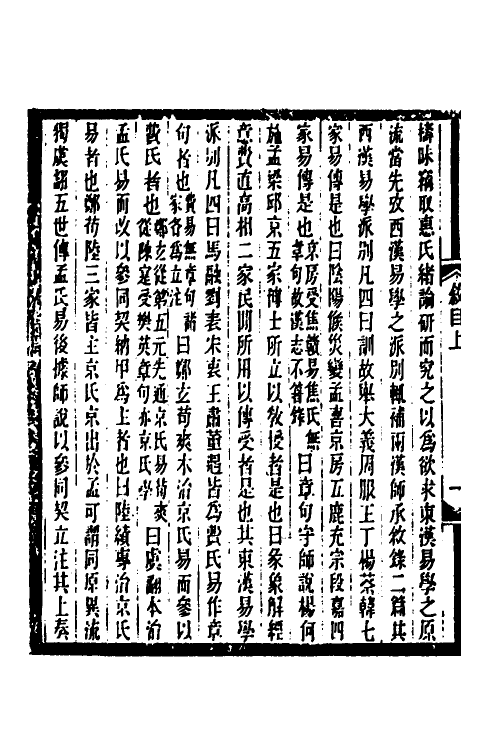 檮昧竊取惠氏緒論研而究之以爲欲求東漢易學之原
流當先攷西漢易學之派別輒補兩漢師承敘錄二篇其
西漢易學派別凡四曰訓故舉大義周服王丁楊蔡韓七
家易傳是也曰陰陽候災變孟喜京房五鹿充宗段嘉四
家易傳是也京房受焦延壽易焦氏無章句故漢志不箸錄曰章句守師說楊何
施孟梁邱京五家博士所立以敎授者是也曰彖象解經
意費直高相二家民間所用以傳受者是也其東漢易學
派別凡四曰馬融劉表宋衷王肅董遇皆爲費氏易作章
句者也費易無章句諸家各爲立注曰鄭玄荀爽本治京氏易而參以
費氏者也鄭玄從第五元先通京氏易荀爽從陳寔受樊英章句亦京氏學曰虞翻本治
孟氏易而改以參同契納甲爲上者也曰陸績專治京氏
易者也鄭荀陸三家皆主京氏京出於孟可謂同原異流
獨虞翻五世傳孟氏易後據師說以參同契立注其上奏
敘目上
一